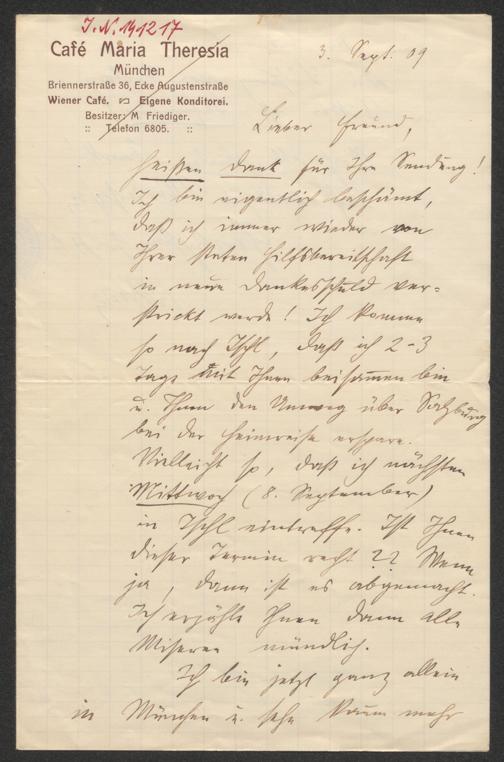 J.N. 141217
Café Maria Theresia
München
Briennerstraße 36, Ecke Augustenstraße
Wiener Café. Eigene Konditorei.
Besitzer: M Friediger.
:: Telefon 6805. ::
3. Sept. 09
Lieber Freund,
heißen Dank für Ihre Sendung!
Ich bin eigentlich beschämt,
daß ich immer wieder von
Ihrer steten Hilfsbereitschaft
in neue Dankesschuld ver=
strickt werde! Ich komme
so nach Ischl, daß ich 2-3
Tage mit Ihnen beisammen bin
u. Ihnen den Umweg über Salzburg
bei der Heimreise erspare.
Vielleicht so, daß ich nächsten
Mittwoch (8. September)
in Ischl eintreffe. Ist Ihnen
dieser Termin recht?? Wenn
ja, dann ist es abgemacht.
Ich erzähle Ihnen dann alle
Miseren mündlich.
Ich bin jetzt ganz allein
in München u. sehe kaum mehr